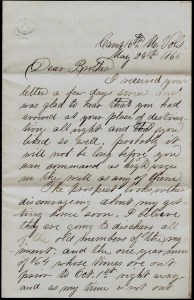 Camp 6th Me Vols
May 24th 186
Dear Brother
I received your
letter a few day since and
was glad to hear that you had
arived at your place of destina
tion all right and that you
liked so well, probably it
will not be long before you
can command as high wages
in the mill as any of them
The prospect looks rather
discouraging about my get
ting home soon. I believe
they are going to discharge all
of the old members of the reg
iment, and the one year men
of 1864 whose times are out
prior to Oct. 1st right away
and as my time is not out